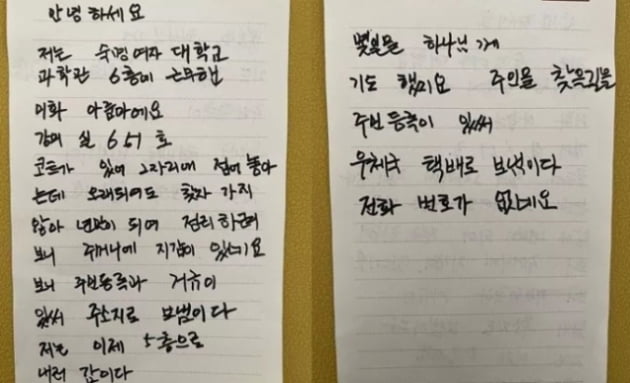 안녕하세요
저는 숙명여자 대학교
과학관 6층에 근무한
미화 아줌마에요
강의실 651호
코트가 있어 그자리에 접어 놓아
는데 오래되여도 찾자 가지
않아 연말이 되여 정리 하려
보니 주머니에 지갑이 있네요
보니 주민등록과
있써 주소지로 보냄이다
저는 이제 5층으로
내려 갔이다
몇일을 하나님 께
기도 했써요 주인을 찾을길을
주민 등록이 있써
우체국 택배로 보냈이다
전화 번호가 없네요